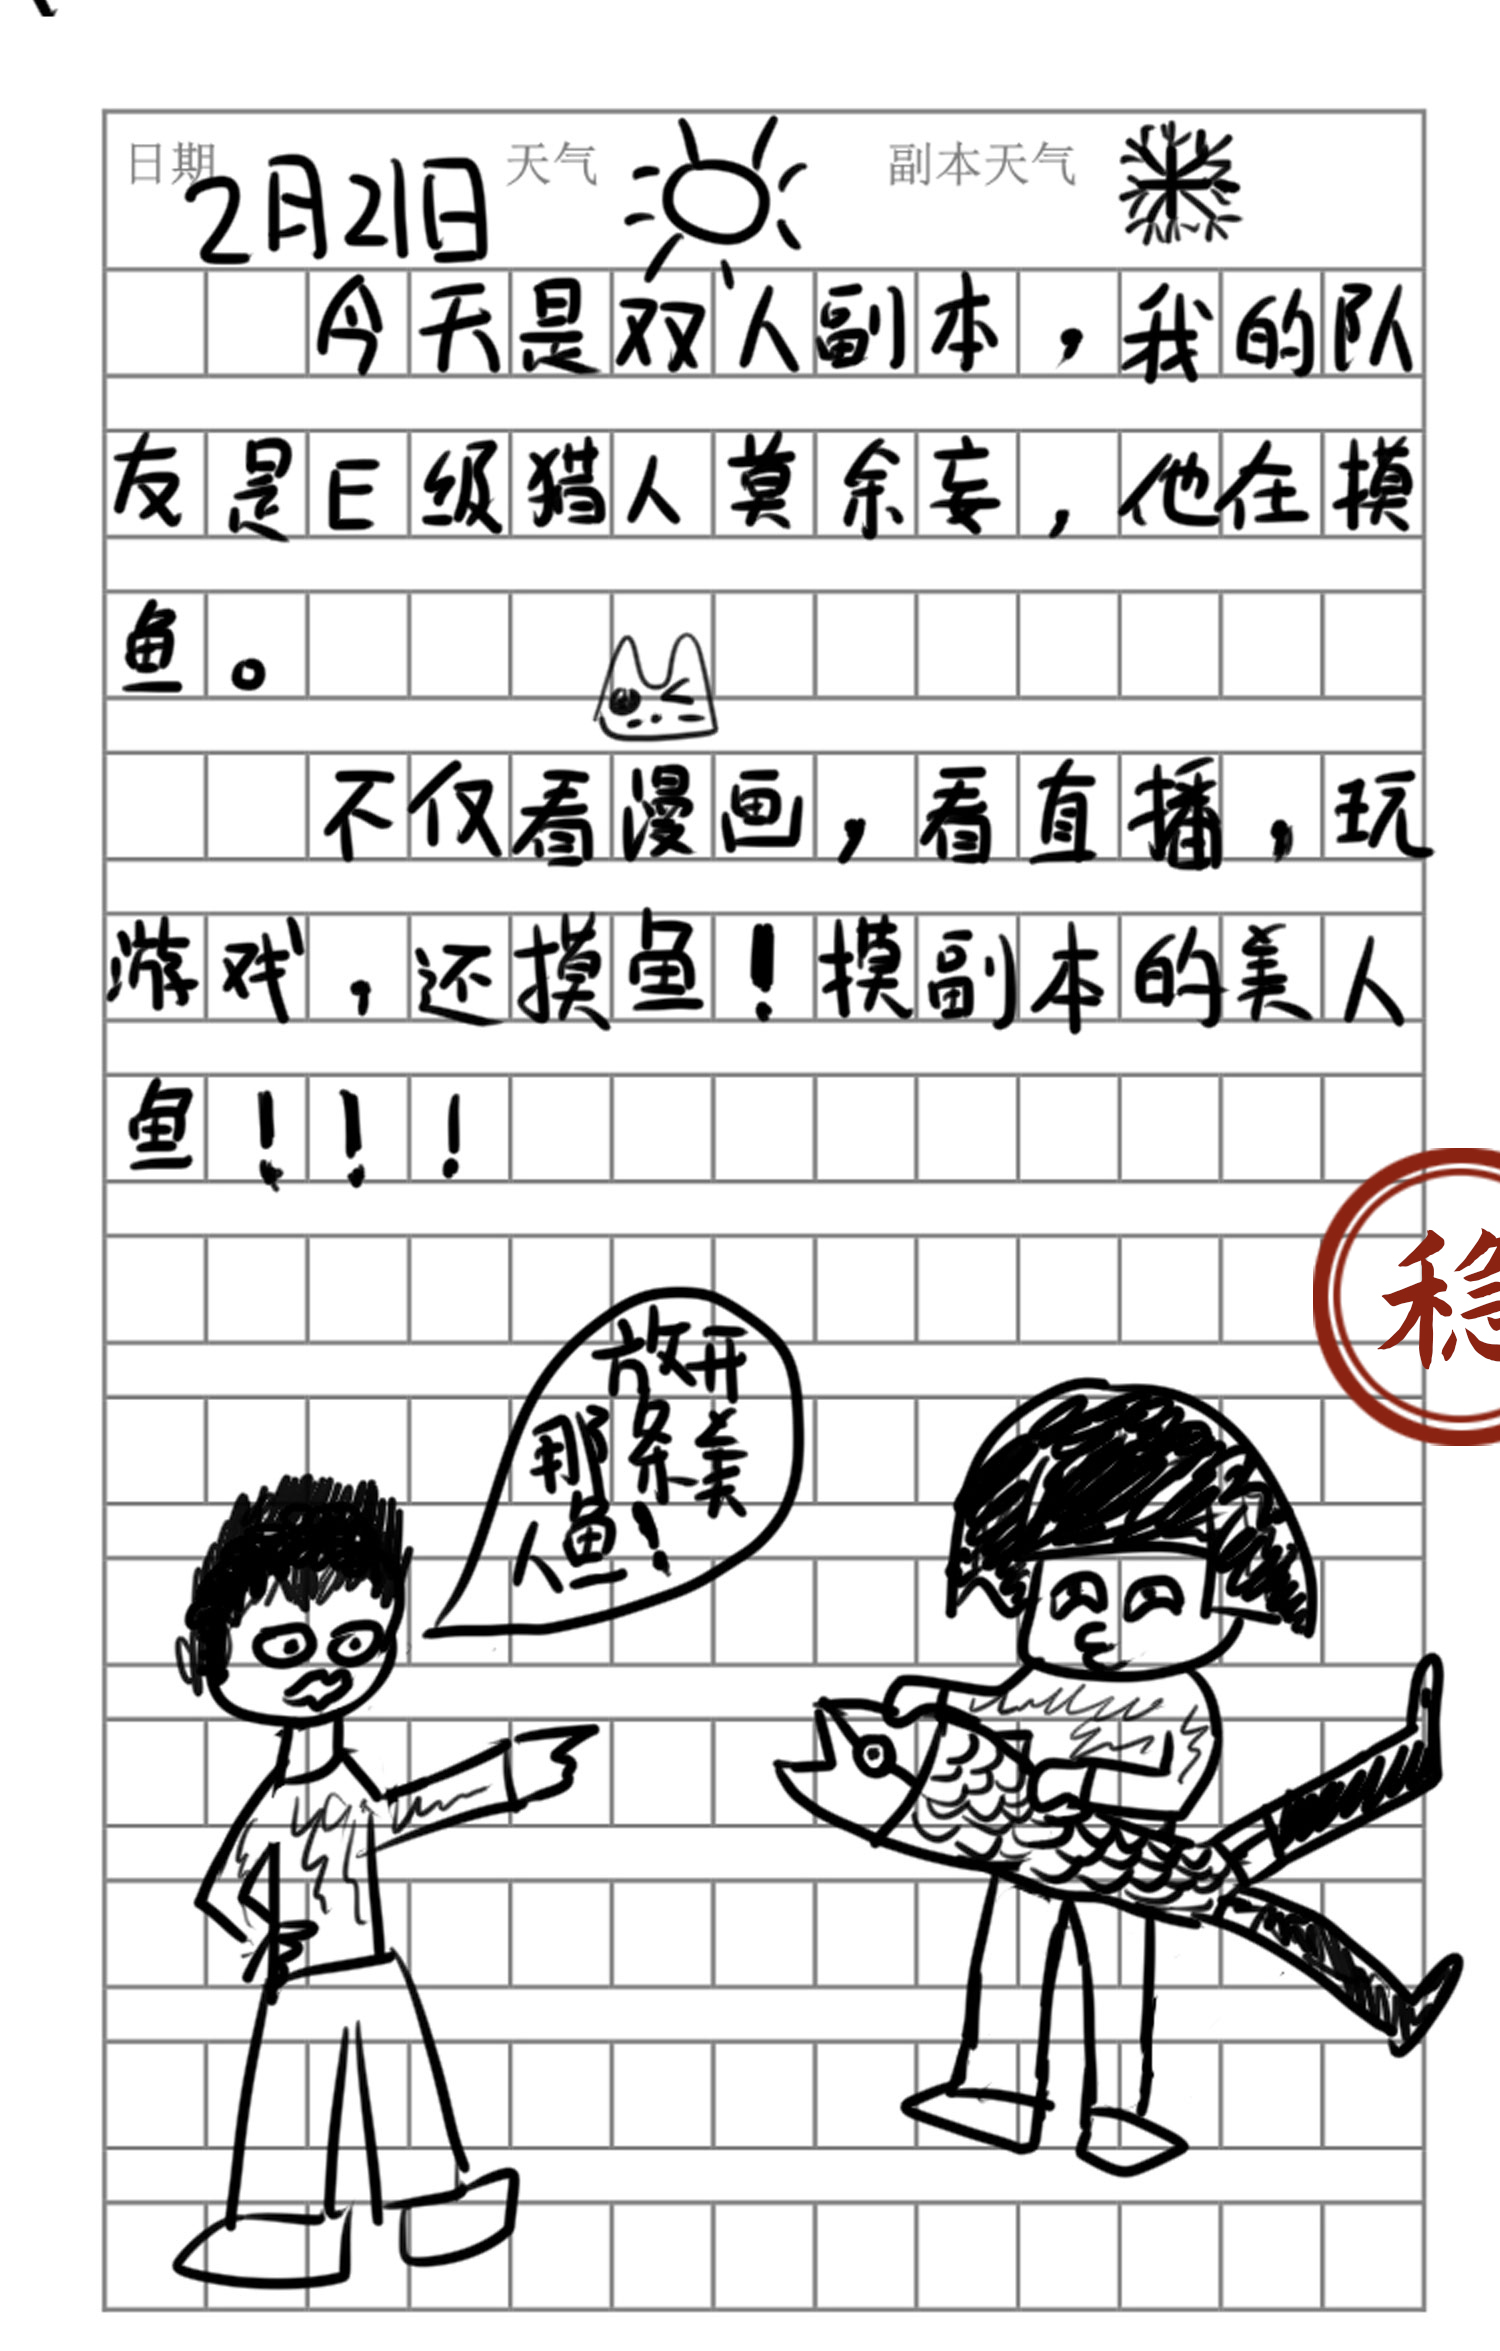 日期 2月21日 天气 副本天气
今天是双人副本，我的队
友是E级猎人莫余妄，他在摸
鱼。
不仅看漫画，看直播，玩
游戏，还摸鱼！摸副本的美人
鱼！！！
稳
放开
那条美
人鱼！